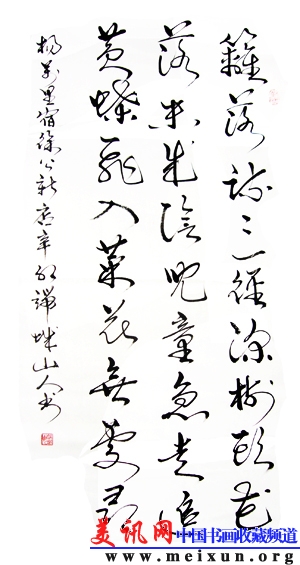 籬落疎〻一徑深樹頭花
落未成陰兒童急走追
黃蝶飛入菜花無處尋
楊萬里宿徐公新店辛卯山人书
美讯网 中国书画收藏频道
www.meixun.org